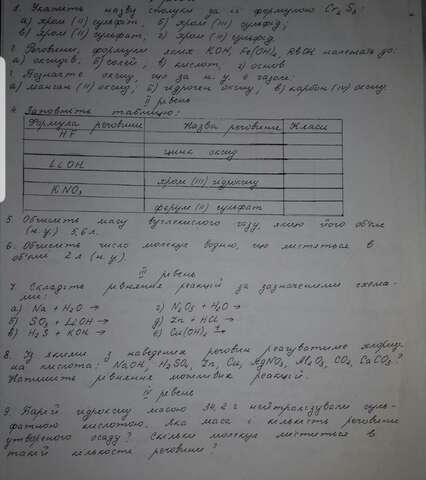 1. Укажіть назву сполуки за її формулою Cr₂S₃:
а) хром (II) сульфат; б) хром (III) сульфід;
в) хром (III) сульфат; г) хром (II) сульфід.
2. Речовини, формули яких KOH, Fe(OH)₂, RbOH належать до:
а) оксидів; б) солей; в) кислот; г) основ
3. Позначте оксид, що за н. у. є газом:
а) манган (II) оксид; б) гідроген оксид; в) карбон (IV) оксид.
II рівень
4. Заповніть таблицю:
Формула речовини Назва речовини Класи
HF
цинк оксид
LiOH
хром (III) гідроксид
KNO₃
ферум (II) сульфат
5. Обчисліть масу вуглекислого газу, якщо його об'єм
(н.у.) 5,6 л.
6. Обчисліть число молекул водню, що міститься в
об'ємі 2 л (н.у.).
III рівень
7. Складіть рівняння реакцій за зазначеними схема-
ми:
а) Na + H₂O → г) N₂O₅ + H₂O →
б) SO₃ + LiOH → д) Zn + HCl →
в) H₂S + KOH → е) Cu(OH)₂ t→
8. З якими з наведених речовин реагуватиме хлорид-
на кислота: NaOH, H₂SO₄, Zn, Cu, AgNO₃, Al₂O₃, CO₂, CaCO₃?
Напишіть рівняння можливих реакцій.
IV рівень
9. Барій гідроксид масою 34,2 г нейтралізували суль-
фатною кислотою. Яка маса і кількість речовини
утвореного осаду? Скільки молекул міститься в
такій кількості речовини?